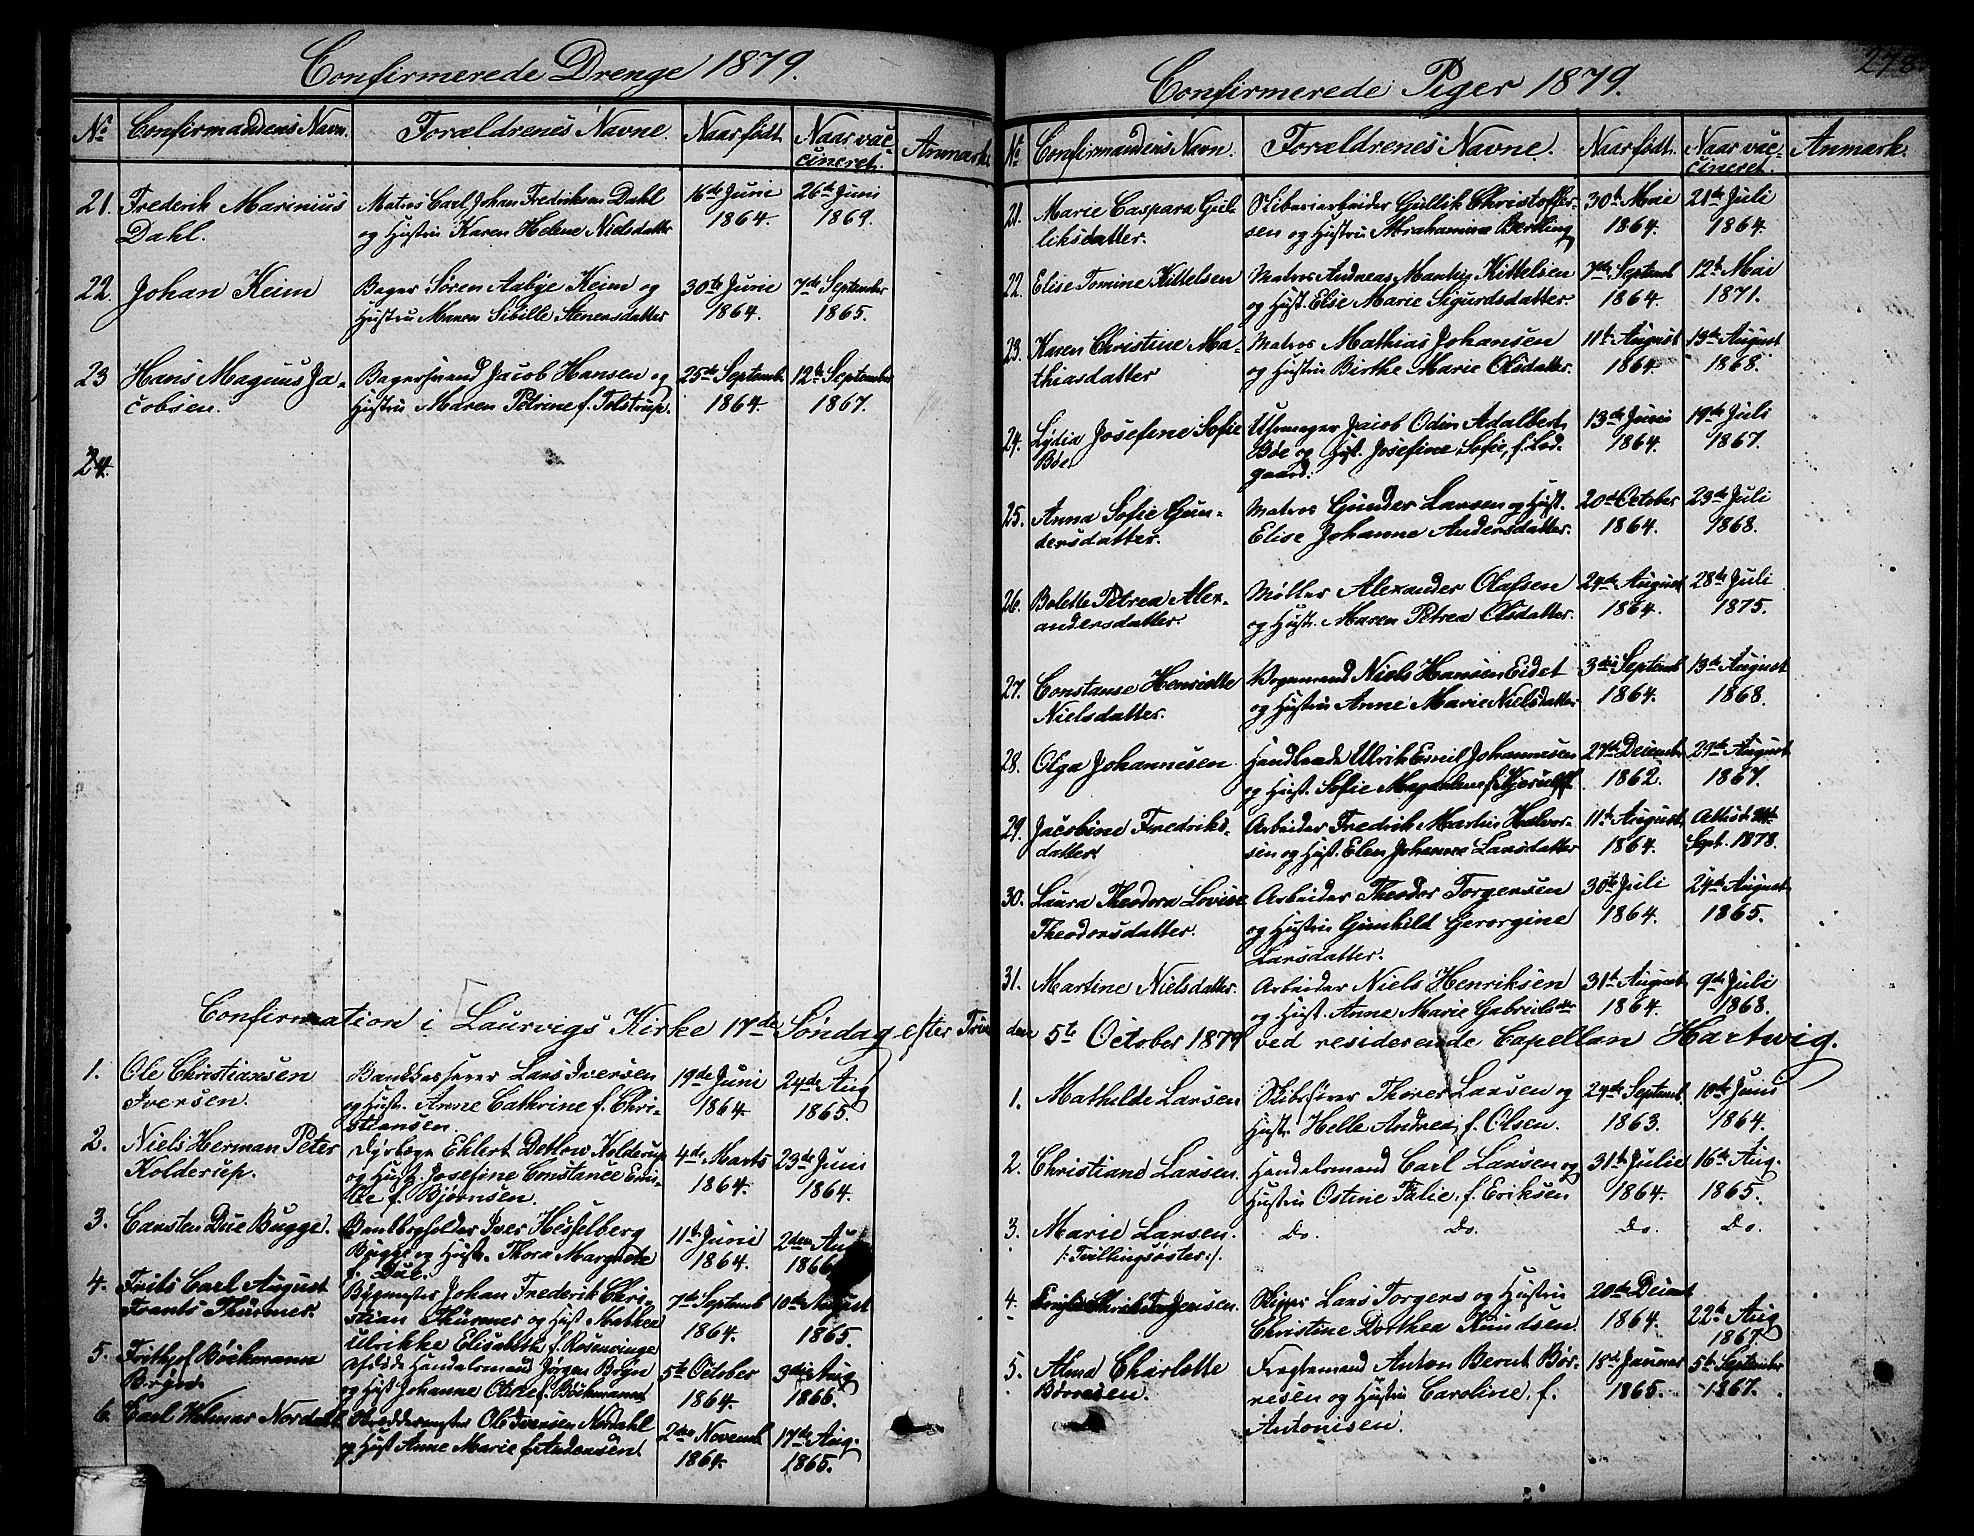 Confirmerede Drenge 1879.
No Confirmandens Navn. Forældrenes Navne. Naar født. Naar vac-
cineret. Anmærk.
21. Frederik Marinius Matros Carl Johan Fredriksen Dahl 16de Juni 26de Juni
Dahl. og Hustru Karen Helene Nielsdatter 1864. 1869.
22. Johan Keim Bager Søren Aabye Keim og 30te Junie 7de September
Hustru Maren Sibille Stenersdatter 1864. 1865.
23 Hans Magnus Ja- Bagersvend Jacob Hansen og 25de Septemb. 12te September
cobsen. Hustru Maren Petrine f. Tolstrup. 1864. 1867.
24.
Confirmation i Laurvigs Kirke 17de Søndag efter Trin
1. Ole Christiansen Bankkasserer Lars Iversen 19de Juni 24de Aug
Iversen. og Hustr. Anne Cathrine f. Chri- 1864. 1865.
stiansen.
2. Niels Herman Peter Dyrlæge Ehlert Detlow Kolderup 4de Marts 23de Juni
Kolderup. og Hust. Josefine Constance Emi- 1864. 1864.
lie f. Bjørnsen.
3. Carsten Due Bugge. Bankbogholder Iver Hesselberg 11te Juni 2den Aug
Bugge og Hustr. Thora Margrete 1864. 1866
f. Due.
4. Frits Carl August Bygmester Johan Frederik Chri- 7de Septemb 10de August
Frants Thürmer. stian Thürmer og Hust Mathea 1864. 1865.
Ulrikke Elisabeth f. Rosenvinge
5. Frithjof Böckmann Afdøde Handelsmand Jörgen Bryn 5te October 3die Aug
Bryn. og Hust Johanne Otilie f. Böckmann 1864. 1866.
6. Carl Hilmar Nordahl Skreddermester Ole Iversen Nordahl 2den Novemb 17de Aug.
og Hust Anne Marie f. Andersen 1864. 1865.
278.
Confirmerede Piger 1879.
No Confirmandens Navn. Forældrenes Navne. Naar født. Naar vac-
cineret. Anmærk.
21. Marie Caspara Gul- Skibsriarbeider Gullik Christoffer- 30te Mai 21de Juli
liksdatter. sen og Hustru Abrahamine Bertling 1864. 1864.
22. Elise Tomine Kittelsen Matros Andreas Martin Kittelsen 7de Septemb 12te Mai
og Hust. Elise Marie Sigurdsdatter. 1864. 1871.
23. Karen Christine Ma- Matros Mathias Johansen 11te August 13de August
thiasdatter og Hustru Birthe Marie Olsdatter. 1864. 1868.
24. Lydia Josefine Sofie Uhrmager Jacob Odin Adalbert 13de Juni 19de Juli
Bøe. Bøe og Hust. Josefine Sofie, f. Lød- 1864. 1867.
gaard.
25. Anna Sofie Gun- Matros Gunder Larsen og Hust. 20de October 23de Juli
dersdatter. Elise Johanne Andersdatter. 1864. 1868.
26. Bolette Petrea Alex- Møller Alexander Olafsen 24de August 28de Juli
andersdatter. og Hustr. Maren Petrea Olsdatter. 1864. 1875.
27. Constanse Henriette Vognmand Niels Hansen Eidet 3die Septemb 13de August
Nielsdatter. og Hustru Anne Marie Nielsdatter 1864. 1868.
28. Olga Johannesen Handlende Ulrik Emil Johannesen 27de Decemb. 29de August
og Hust. Sofie Magdalene f. Kjerulff 1862. 1867.
29. Jacobine Fredriks- Arbeider Fredrik Martin Halvor- 11te August Attest 24
datter. sen og Hust. Elen Johanne Larsdatter 1864. Sept. 1878.
30. Laura Theodora Lovise Arbeider Theodor Torgersen 30te Juli 24de August
Theodorsdatter. og Hustru Gunhild Gerorgine 1864. 1865.
Larsdatter.
31. Martine Nielsdatter. Arbeider Niels Henriksen 31te August 9de Juli
og Hust. Anne Marie Gabrielsdtr 1864. 1868.
den 5te October 1879 ved residerende Capellan Hartwig.
1. Mathilde Larsen Skibsfører Thorer Larsen og 24de Septemb. 10de Juni
Hustr. Helle Andrea, f. Olsen. 1863. 1864.
2. Christiane Larsen. Handelsmand Carl Larsen og 31te Julie 16de Aug.
Hustru Ostine Talie, f. Eriksen 1864. 1865.
3. Marie Larsen. do. do. do. do.
/: Tvillingsøster :/.
4. Jensen. Skipper Lars Torgers og Hustru 20de Decemb
Christine Dorthea Knudsen. 1864. 22de Aug
1867
5. Alma Charlotte Fragtemand Anton Bernt Bør- 18de Januar 5te September
Børresen. resen og Hustru Caroline, f. 1865. 1867.
Antonisen.